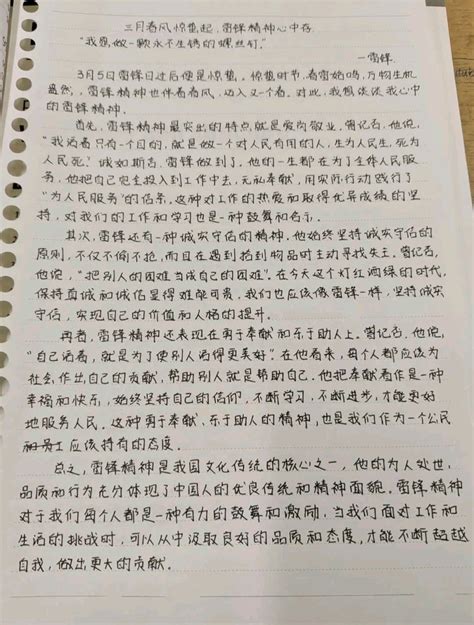 三月春风惊蛰起,雷锋精神心中存
“我愿做一颗永不生锈的螺丝钉。”
—雷锋
3月5日雷锋日过后便是惊蛰。惊蛰时节,春雷始鸣,万物生机
盎然,雷锋精神也伴着春风,迈入又一个春。对此,我想谈谈我心中
的雷锋精神。
首先,雷锋精神最突出的特点就是爱岗敬业。曾记否,他说,
“我活着只有一个目的,就是做一个对人民有用的人,生为人民生,死为
人民死。”诚如斯言,雷锋做到了,他的一生都在为了全体人民服
务,他把自己完全投入到工作中去,无私奉献,用实际行动践行了
“为人民服务”的信条,这种对工作的热爱和取得优异成绩的坚
持,对我们的工作和学习也是一种鼓舞和启示。
其次,雷锋还有一种诚实守信的精神。他始终坚持诚实守信的
原则,不仅不偷不抢,而且在遇到拾到物品时主动寻找失主。曾记否,
他说,“把别人的困难当成自己的困难”。在今天这个灯红酒绿的时代,
保持真诚和诚信显得难能可贵,我们也应该像雷锋一样,坚持诚实
守信,实现自己的价值和人格的提升。
再者,雷锋精神还表现在勇于奉献和乐于助人上。曾记否,他说,
“自己活着,就是为了使别人活得更美好”。在他看来,每个人都应该为
社会作出自己的贡献,帮助别人就是帮助自己。他把奉献看作是一种
幸福和快乐,始终坚持自己的信仰,不断学习,不断进步,才能更好
地服务人民。这种勇于奉献,乐于助人的精神,也是我们作为一个公民
和员工应该持有的态度。
总之,雷锋精神是我国文化传统的核心之一,他的为人处世,
品质和行为充分体现了中国人的优良传统和精神面貌。雷锋精神
对于我们每个人都是一种有力的鼓舞和激励,当我们面对工作和
生活的挑战时,可以从中汲取良好的品质和态度,才能不断超越
自我,做出更大的贡献。